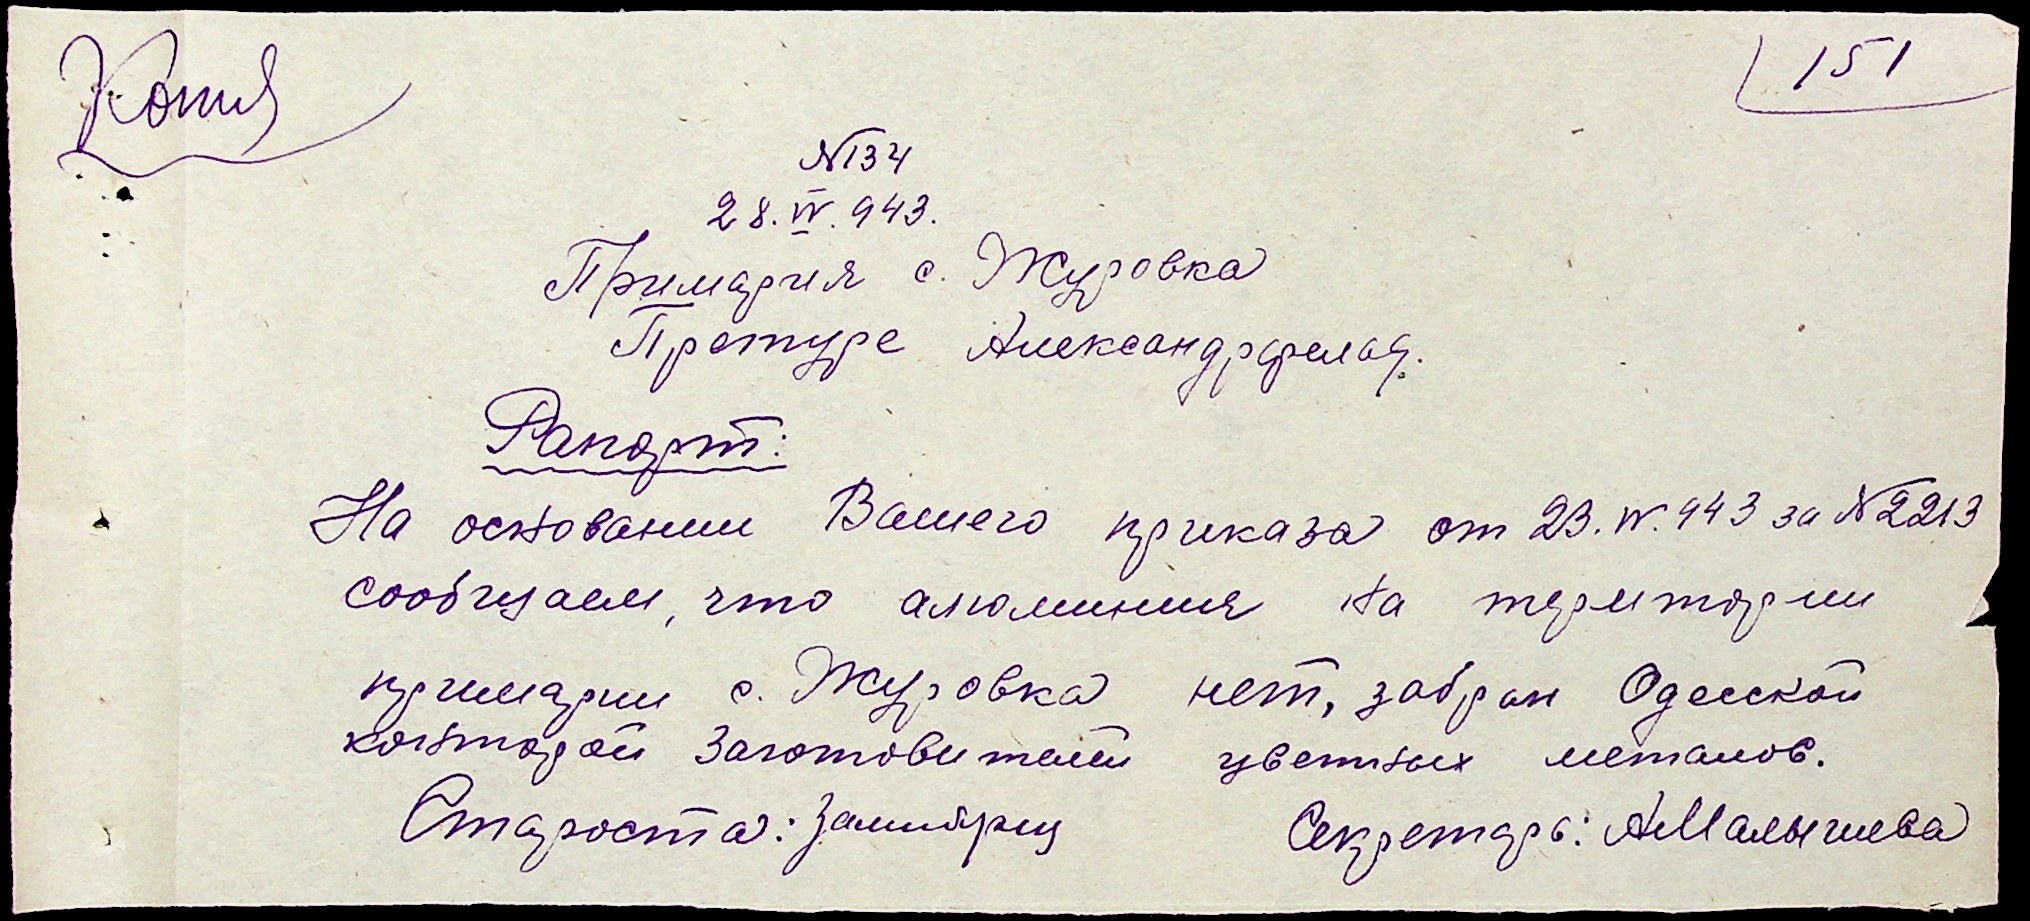 Копия
151
№134
28.IV.943.
Примария с. Журовка
Претуре Александрфельд.
Рапорт:
На основании Вашего приказа от 23.IV.943 за №2213
сообщаем, что алюминия на територии
примарии с. Журовка нет, забран Одесской
конторой Заготовителей цветных металов.
Староста:
Секретарь: АМалышева